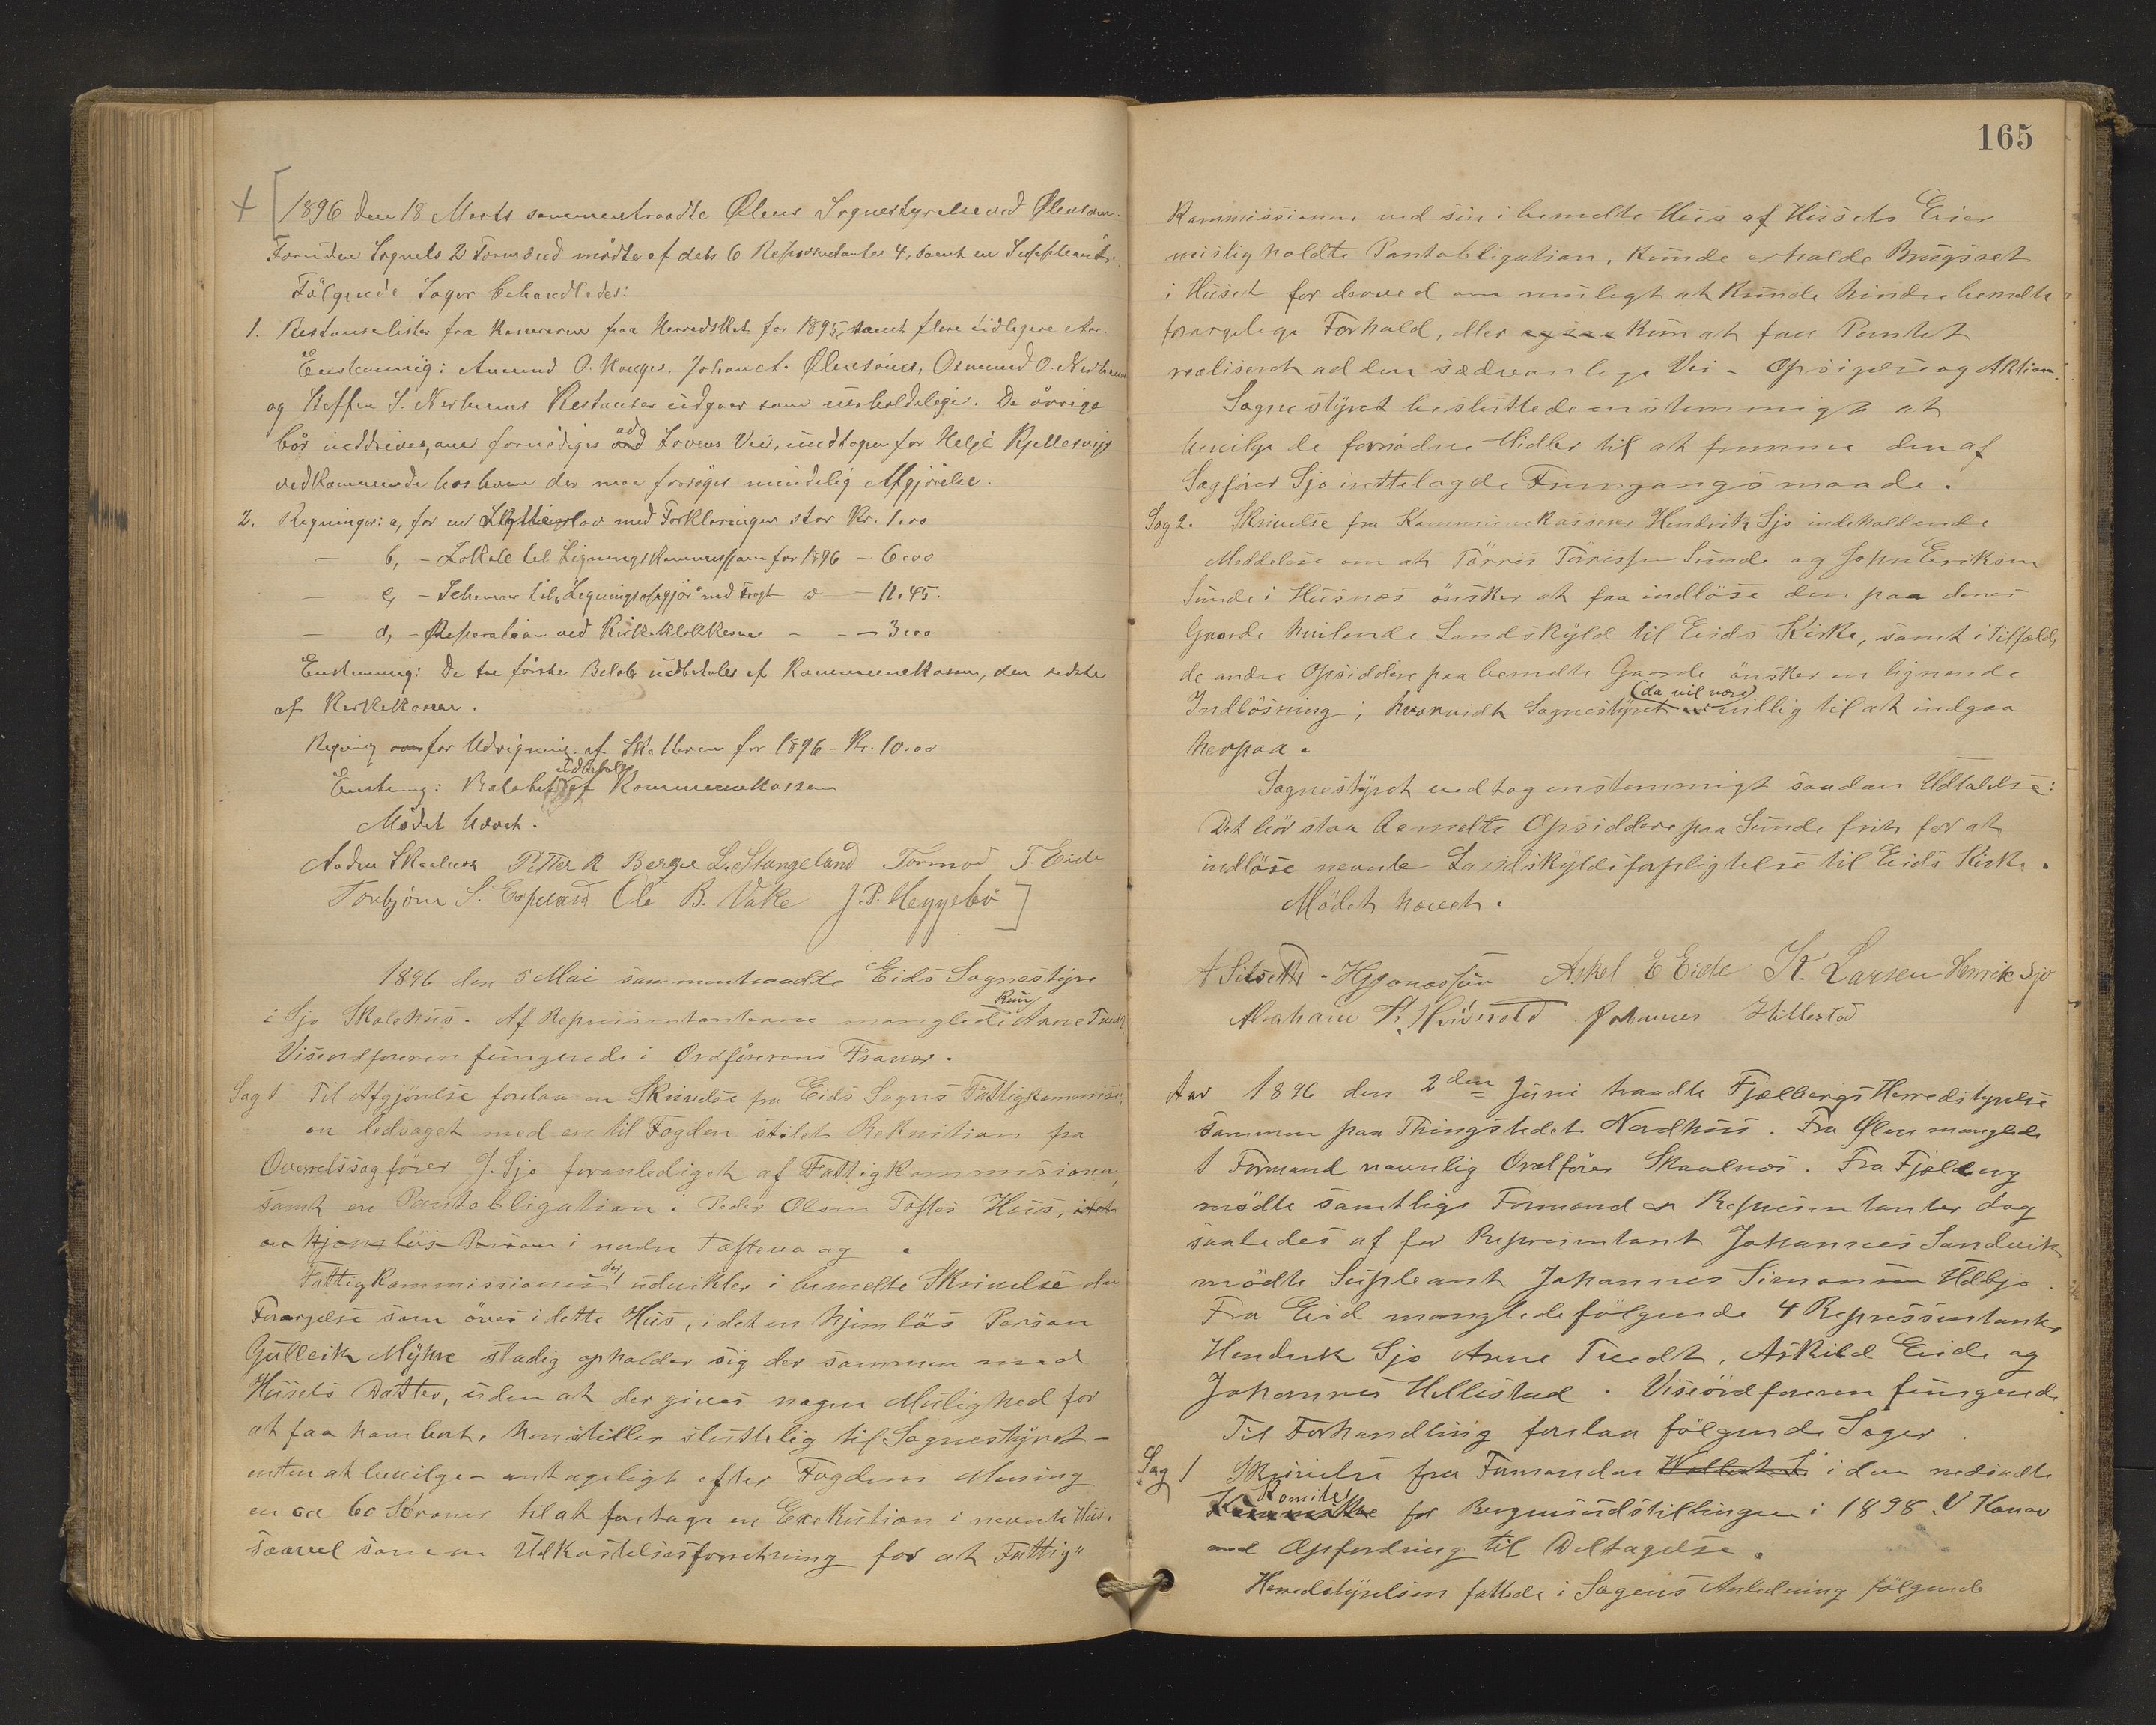 1896 den 18 Marts sammentraadte Ølens Sognestyrelse ved Ølensøen.
Foruden Sognets 2 Formænd mødte af dets 6 Repræsentanter 4, samt en Suppleant.
Følgende Sager behandledes:
1. Restanselister fra Kassereren paa Herredskat for 1895, samt flere tidligere Aar.
Enstemmig: Amund O. Hauges, Johan A. Ølensøens, Osmund O. Nerheim
og Steffen S. Nerheims Restanser udgaar som uerholdelige. De øvrige
bør inddrives, om fornødiges ad Lovens Vei, undtagen for Helje Kjellesvig
vedkommende hos hvem der maa forsøges mindelig Afgjørelse.
2. Regninger: a, for en Skyttelov med Forklaringer stor Kr. 1.00
— b, – Lokale til Ligningskommissjonen for 1896 – 6.00
— c, – Schemaer til Ligningsopgjør med Fragt — 11.45.
— d, – Reparation ved Kirkeklokkerne – – – 3.00
Enstemmig: De tre første Beløb udbetales af Kommunekassen, den sidste
af Kirkekassen.
Regning for Udregning af Skatterne for 1896 – Kr. 10.00
Enstemmig: Beløbet udbetales af Kommunekassen
Mødet hævet.
Aaden Skaalnes Petter R Berge L. Stangeland Tormod T. Eide
Torbjørn S. Espeland Ole B. Vake J. P. Heggebø
1896 den 5 Mai sammentraadte Eids Sognestyre
i Sjo Skolehus. Af Repræsentanterne manglede Kun Arne Tvedt
Viseordføreren fungerede i Ordførerens Fravær.
Sag 1 Til Afgjørelse forelaa en Skrivelse fra Eids Sogns Fattigkommisi,
on ledsaget med en til Fogden stilet Rekvisition fra
Overretssagfører J. Sjo foranlediget af Fattigkommisionen,
samt en Pantobligation i Peder Olsen Toftes Hus,
en hjemløs Person i nedre Tøfteva og
Fattigkommissionen der udvikler i bemeldte Skrivelse den
Forargelse som øves i dette Hus, idet en hjemløs Person
Gulleik Myhre stadig opholder sig der sammen med
Husets Datter, uden at der gives nogen Mulighed for
at faa ham bort, henstiller sluttelig til Sognestyret –
enten at bevilge – antageligt efter Fogdens Mening
en ca 60 Kroner til at foretage en Exekution i nævnte Hus,
saavel som en Udkastelsesforretning for at Fattig"
165
Kommissionen ved sin i bemeldte Hus af Husets Eier
misligholdte Pantobligation, kunde erholde Brugsret
i Huset for derved om muligt at kunde hindre bemeldte
forargelige Forhold, eller Kun at faa Pantet
realiseret ad den sædvanlige Vei – Opsigelse og Aktion.
Sognestyret besluttede enstemmigt at
bevilge de fornødne Midler til at fremme den af
Sagfører Sjo indtelagde Fremgangsmaade.
Sag 2. Skrivelse fra Kommunekasserer Hendrik Sjo indeholdende
Meddelelse om at Tørres Tørressen Sunde og John Eriksen
Sunde i Husnæs ønsker at faa indløse den paa deres
Gaarde hvilende Landskyld til Eids Kirke, samt i Tilfælde
de andre Opsiddere paa bemeldte Gaarde ønsker en lignende
Indløsning; hvorvidt Sognestyret (da vil være) villig til at indgaa
herpaa.
Sognestyret vedtog enstemmigt saadan Udtalelse:
Det bør staa bemeldte Opsiddere paa Sunde frit for at
indløse nævnte Landskyldsforpligtelse til Eids Kirke.
Mødet hævet.
A Silsett HJonassen Askel E Eide K. Larsen Henrik Sjo
Abraham K. Hvidevold Johannes Hillestad
Aar 1896 den 2den Juni traadte Fjælbergs Herredstyrelse
sammen paa Thingstedet Nordhus. Fra Ølen manglede
1 Formand navnlig Ordfører Skaalnes. Fra Fjælberg
mødte samtlige Formænd & Repræsentanter dog
saaledes at for Repræsentant Johannes Sandvik
mødte Supleant Johannes Simonsen Udbjo.
Fra Eid manglede følgende 4 Repræsentanter
Hendrik Sjo Arne Tvedt, Askild Eide og
Johannes Hillestad. Viseordføreren fungerede.
Til Forhandling forelaa følgende Sager.
Sag 1 Skrivelse fra Formanden i den nedsadte
Komite for Bergensudstillingen i 1898. V Konow
med Opfordring til Deltagelse.
Herredstyrelsen fattede i Sagens Anledning følgende